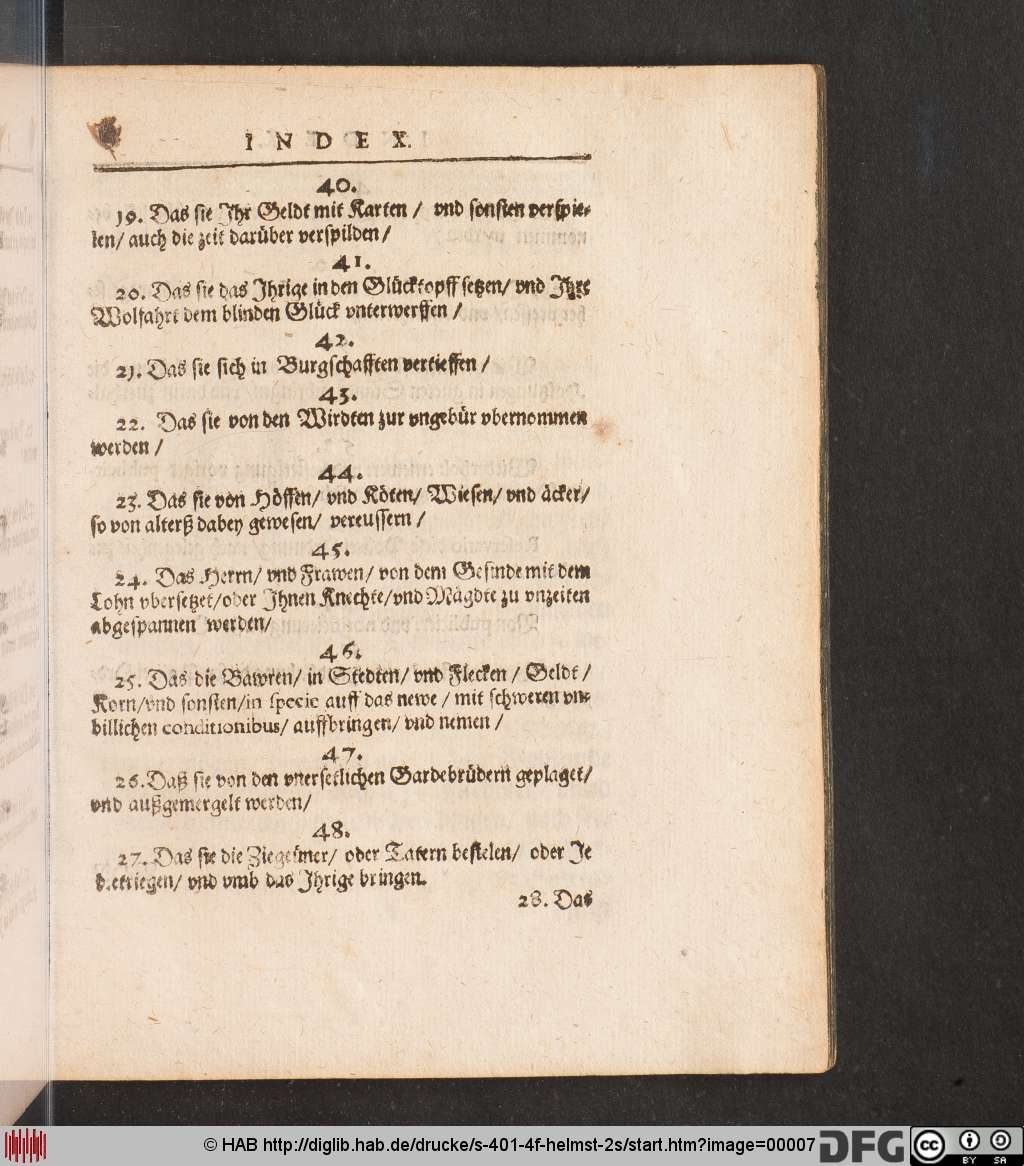 INDEX.
40.
19. Das sie Ihr Geldt mit Karten / vnd sonsten verspie-
len/ auch die zeit darüber verspilden/
41.
20. Das sie das Ihrige in den Glücktopff setzen/ vnd Ihre
Wolfahrt dem blinden Glück vnterwerffen /
42.
21. Das sie sich in Burgschafften vertieffen /
43.
22. Das sie von den Wirdten zur vngebür vbernommen
werden /
44.
23. Das sie von Höffen/ vnd Köten/ Wiesen/ vnd äcker/
so von alterß dabey gewesen/ vereussern /
45.
24. Das Herrn/ vnd Frawen/ von dem Gesinde mit dem
Lohn vbersetzet/oder Ihnen Knechte/vnd Mägdte zu vnzeiten
abgespannen werden/
46.
25. Das die Bawren/ in Stedten/ vnd Flecken / Geldt /
Korn/vnd sonsten/in specie auff das newe / mit schweren vn-
billichen conditionibus/ auffbringen/ vnd nemen /
47.
26. Daß sie von den vnersetlichen Gardebrüdern geplaget/
vnd außgemergelt werden/
48.
27. Das sie die Ziegeüner/ oder Tatern bestelen/ oder Je
betriegen/ vnd vmb das Ihrige bringen.
28. Das
© HAB http://diglib.hab.de/drucke/s-401-4f-helmst-2s/start.htm?image=00007
DFG
cc BY SA